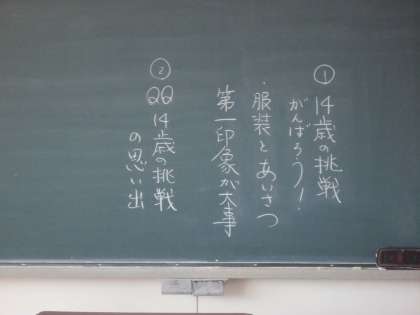 ① 14歳の挑戦
がんばろう!
・服装とあいさつ
第一印象が大事
②
14歳の挑戦
の思い出